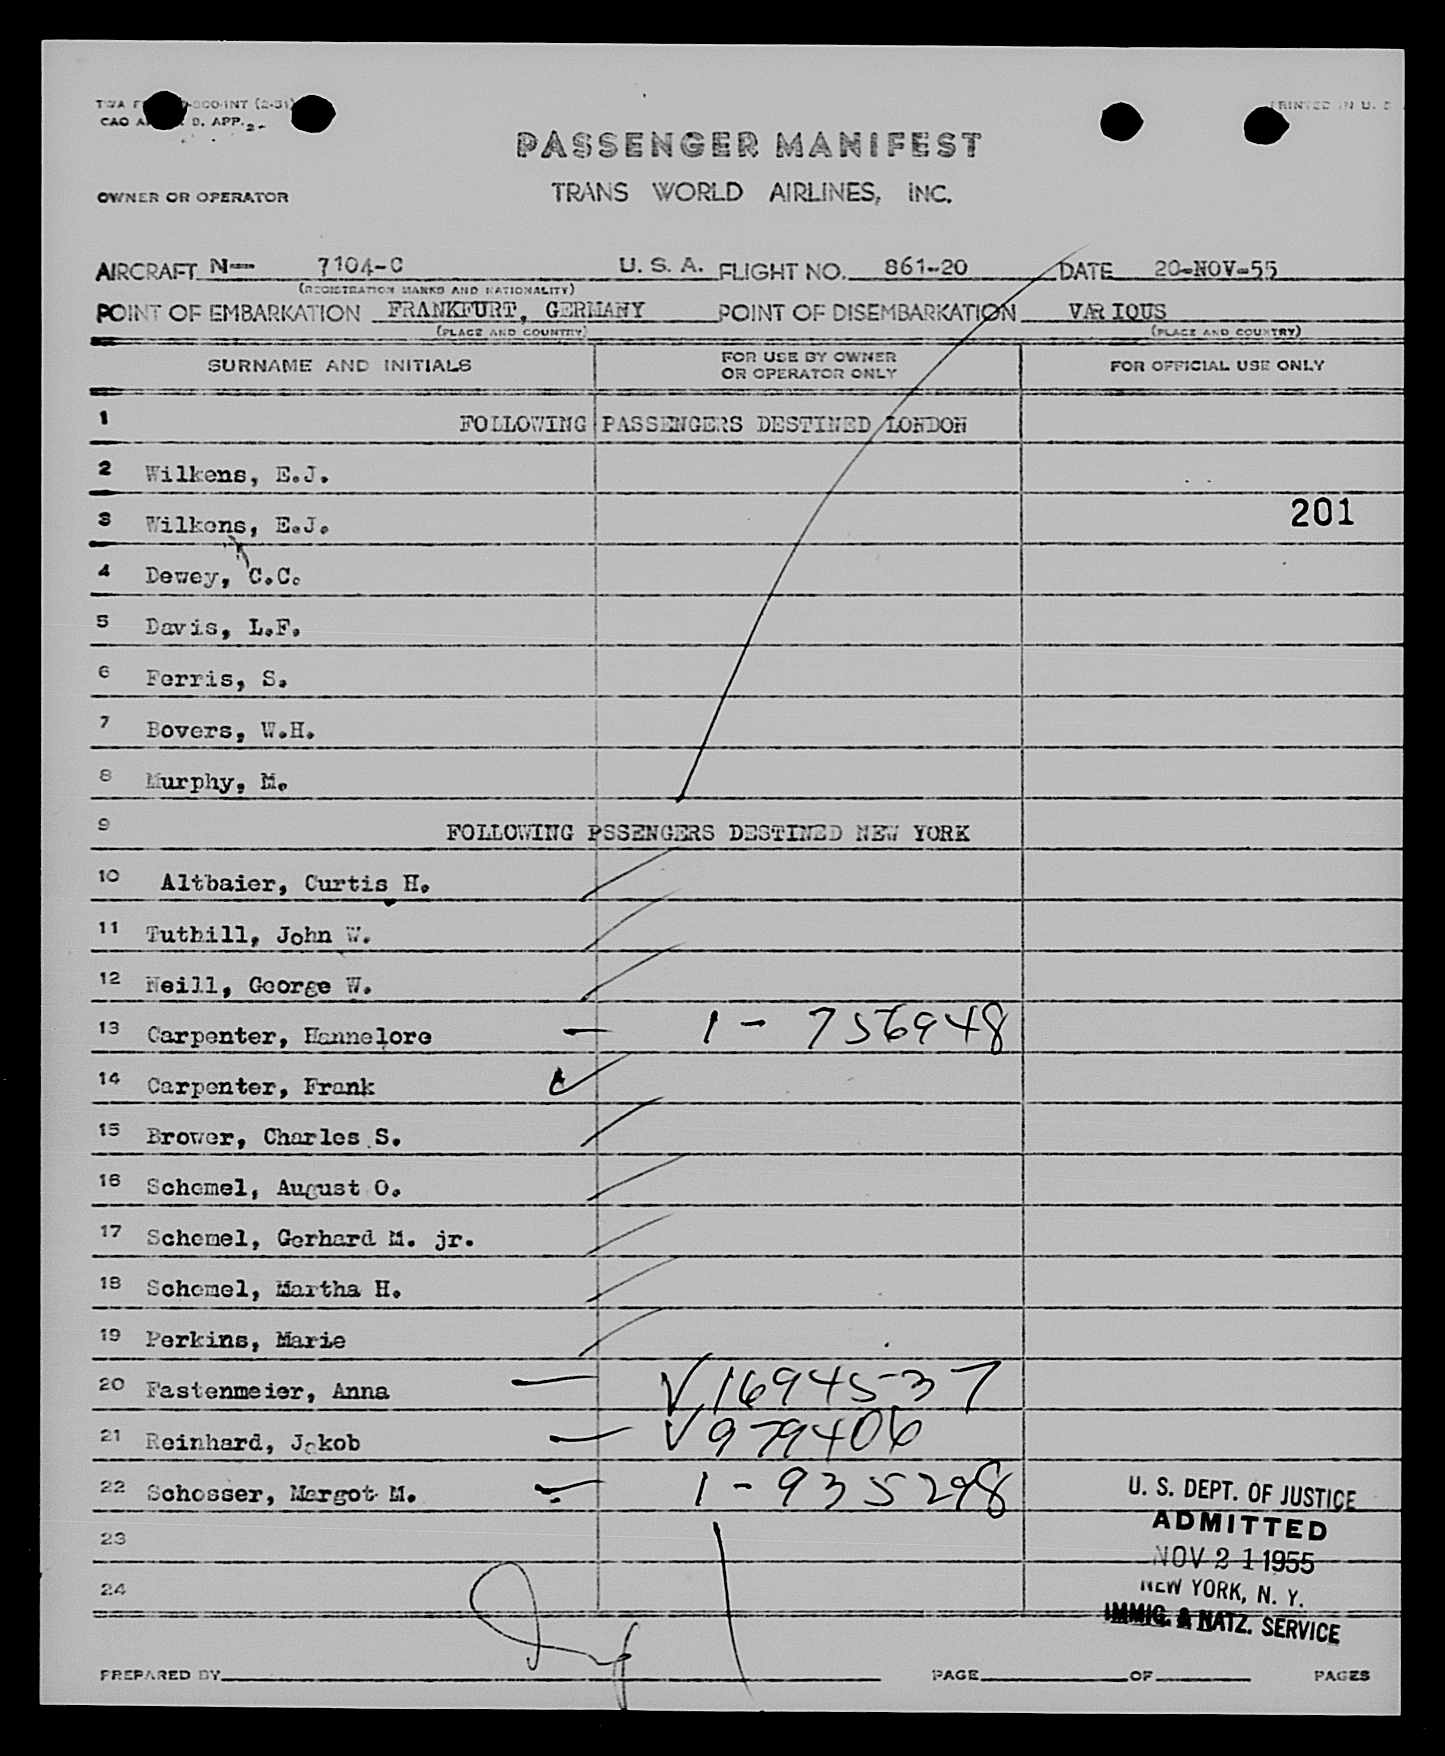 CAO
D. APP.
PRINTED IN U. S
PASSENGER MANIFEST
OWNER OR OPERATOR
TRANS WORLD AIRLINES, INC.
AIRCRAFT N-- 7104-C U. S. A. FLIGHT NO. 861-20 DATE 20-NOV-55
(REGISTRATION MARKS AND NATIONALITY)
POINT OF EMBARKATION FRANKFURT, GERMANY POINT OF DISEMBARKATION VARIOUS
(PLACE AND COUNTRY) (PLACE AND COUNTRY)
SURNAME AND INITIALS FOR USE BY OWNER OR OPERATOR ONLY FOR OFFICIAL USE ONLY
1 FOLLOWING PASSENGERS DESTINED LONDON
2 Wilkens, E.J.
3 Wilkens, E.J. 201
4 Dewey, C.C.
5 Davis, L.F.
6 Ferris, S.
7 Bovers, W.H.
8 Murphy, M.
9 FOLLOWING PSSENGERS DESTINED NEW YORK
10 Altbaier, Curtis H.
11 Tuthill, John W.
12 Neill, George W.
13 Carpenter, Hannelore 1 - 756948
14 Carpenter, Frank
15 Brower, Charles S.
16 Schemel, August O.
17 Schemel, Gerhard M. jr.
18 Schemel, Martha H.
19 Perkins, Marie
20 Fastenmeier, Anna V1694537
21 Reinhard, Jakob V979406
22 Schosser, Margot M. 1 - 935298
U. S. DEPT. OF JUSTICE
23 ADMITTED
NOV 21 1955
24 NEW YORK, N. Y.
IMMIG. & NATZ. SERVICE
PREPARED BY PAGE OF PAGES